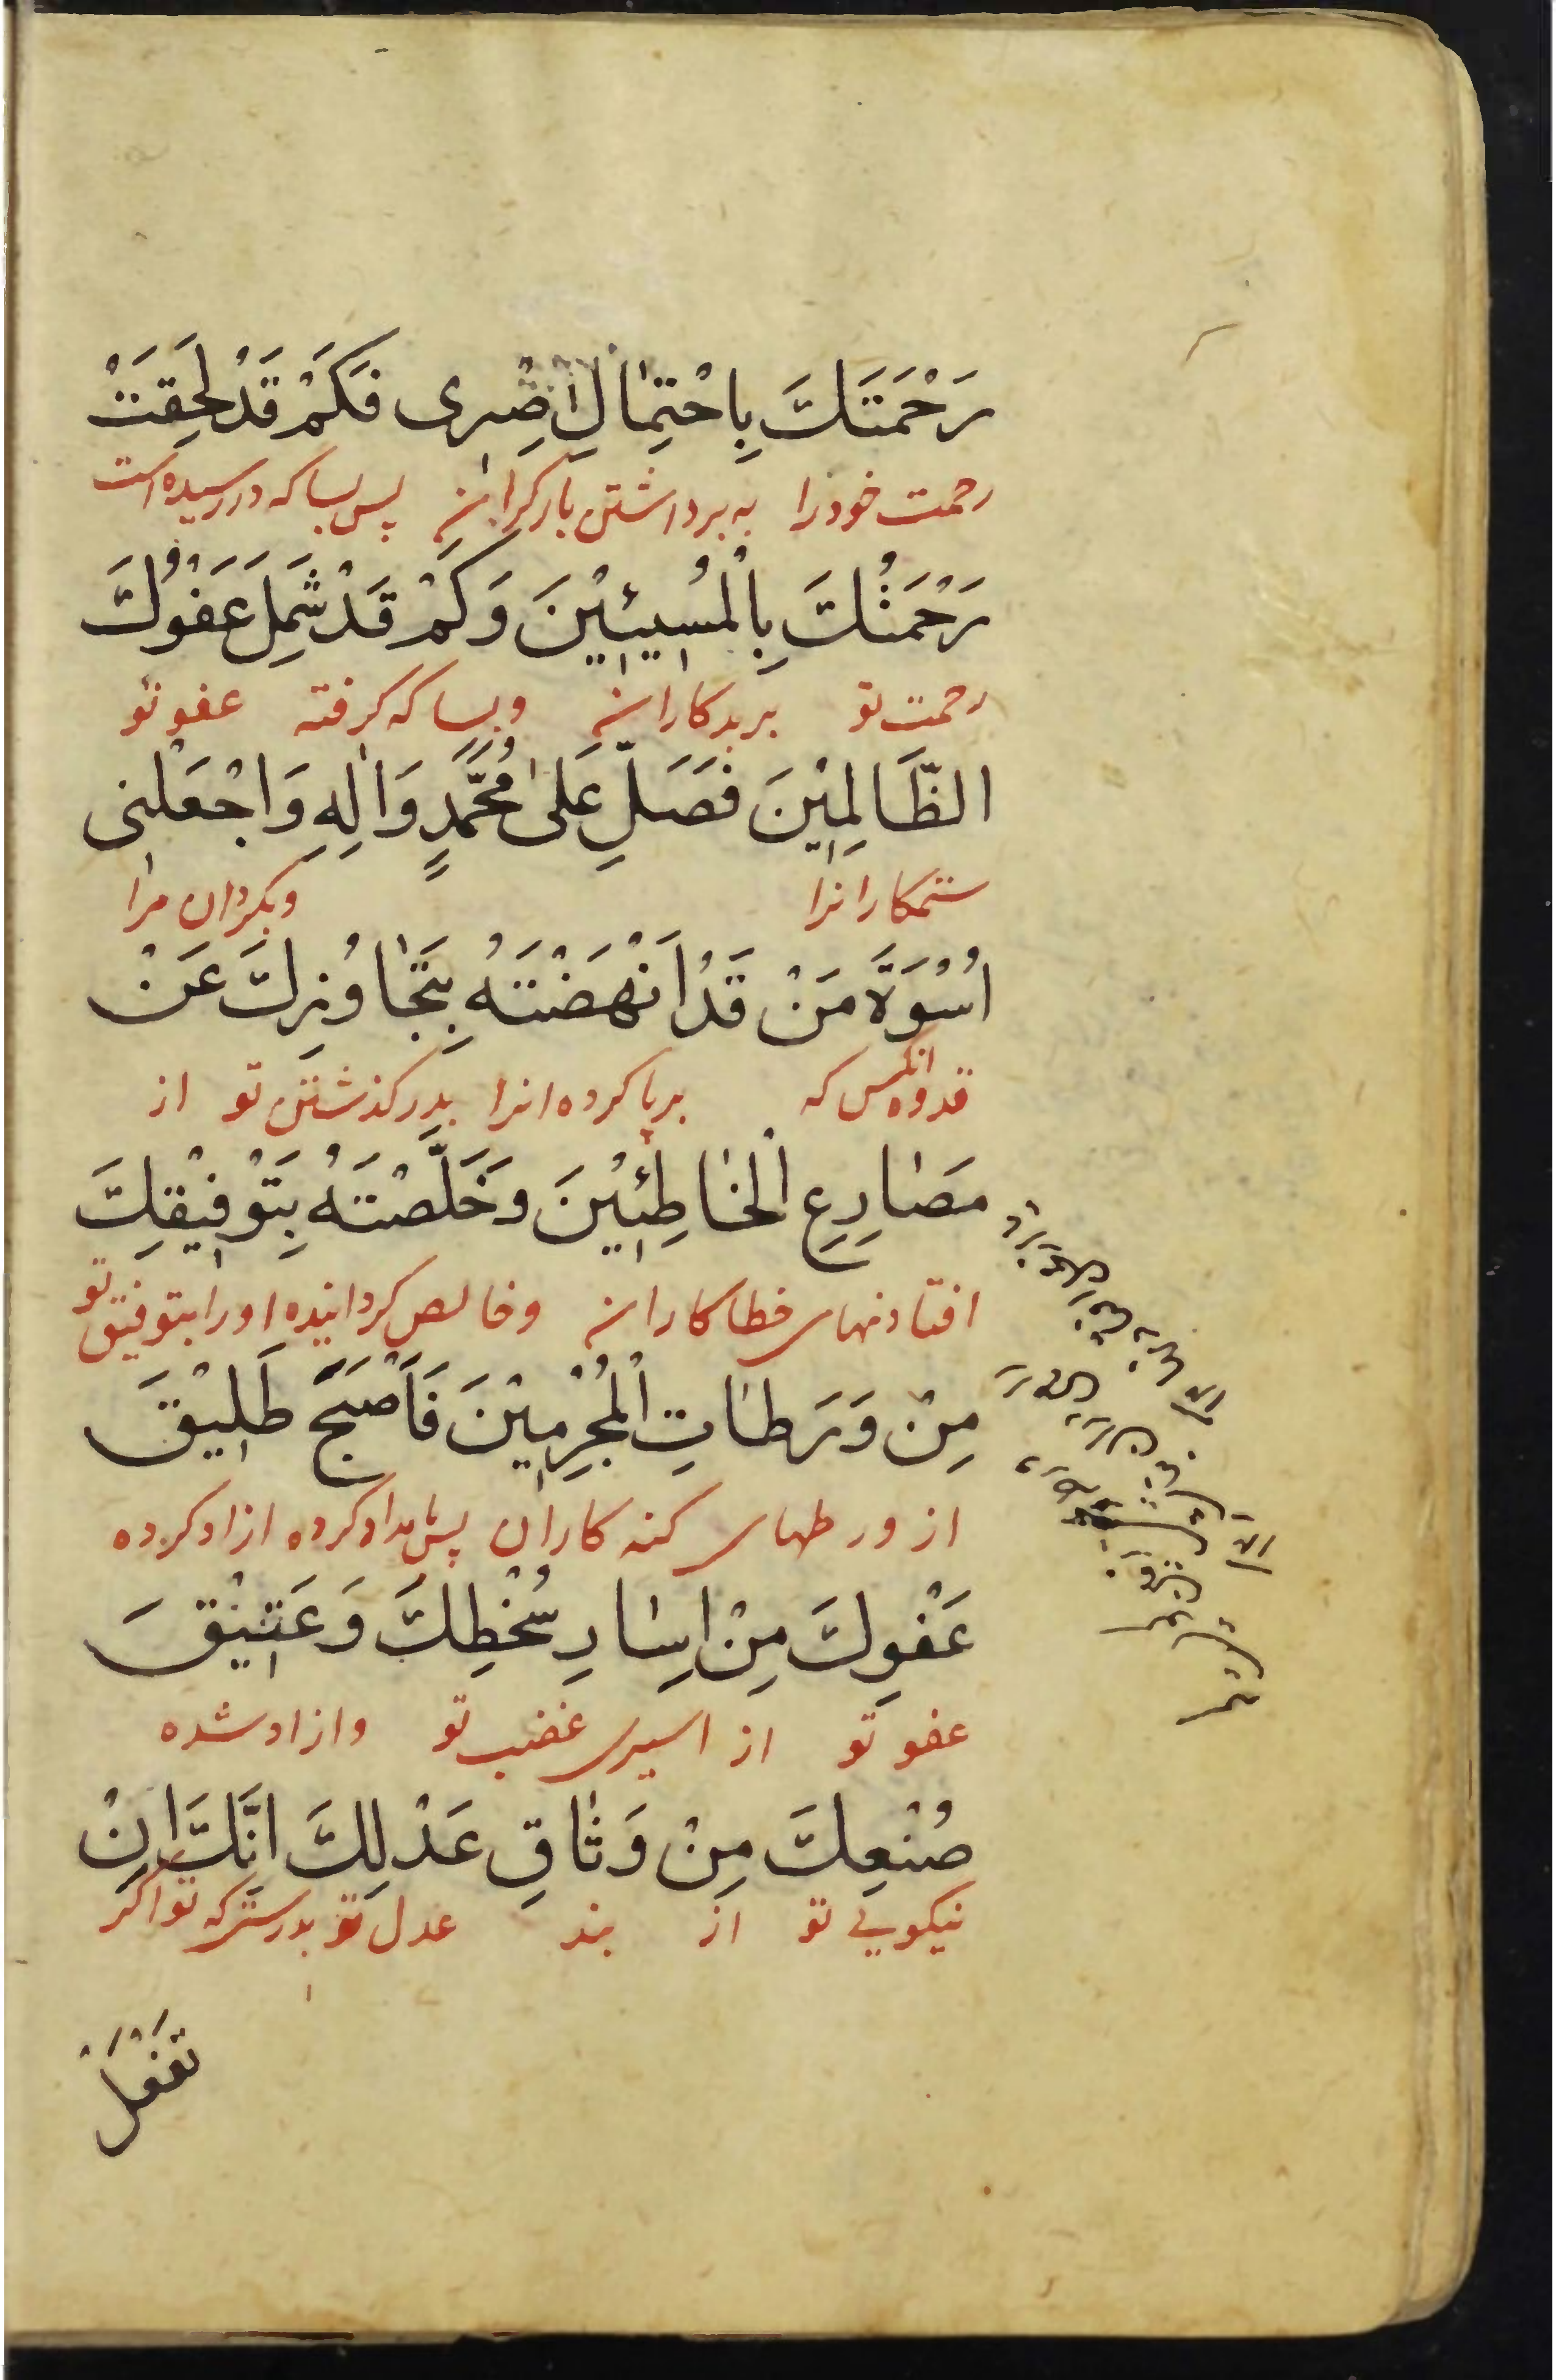 رَحْمَتَكَ بِاحْتِمَالِ اِصْرِی فَکَمْ قَدْ لَحِقَتْ
رحمت خود را به برداشتن بار گرانے پس بسا که در رسیده است
رَحْمَتُكَ بِالْمُسِیئِیْنَ وَکَمْ قَدْ شَمِلَ عَفْوُكَ
رحمت تو بر بدکارانے و بسا که گرفته عفو تو
الظَّالِمِیْنَ فَصَلِّ عَلیٰ مُحَمَّدٍ وَاٰلِهِ وَاجْعَلْنی
ستمکارانرا و بگردان مرا
اُسْوَةَ مَنْ قَدْ اَنْهَضْتَهُ بِتَجَاوُزِكَ عَنْ
قدوه انکس که برپا کرده انرا بدر گذشتن تو از
مَصَارِعِ الْخَاطِئِیْنَ وَخَلَّصْتَهُ بِتَوْفِیْقِكَ
افتادنهای خطاکارانے و خالص گردانیده او را بتوفیق تو
مِنْ وَرَطَاتِ الْمُجْرِمِیْنَ فَاَصْبَحَ طَلِیْقَ
از ورطهای گنه کاران پس بامداد کرده ازاد کرده
عَفْوِكَ مِنْ اِسَارِ سُخْطِكَ وَعَتِیْقَ
عفو تو از اسیری غضب تو و ازاد شده
صُنْعِكَ مِنْ وَثَاقِ عَدْلِكَ اِنَّكَ اِنْ
نیکویے تو از بند عدل تو بدرستی که تو اگر
تَفْعَلْ